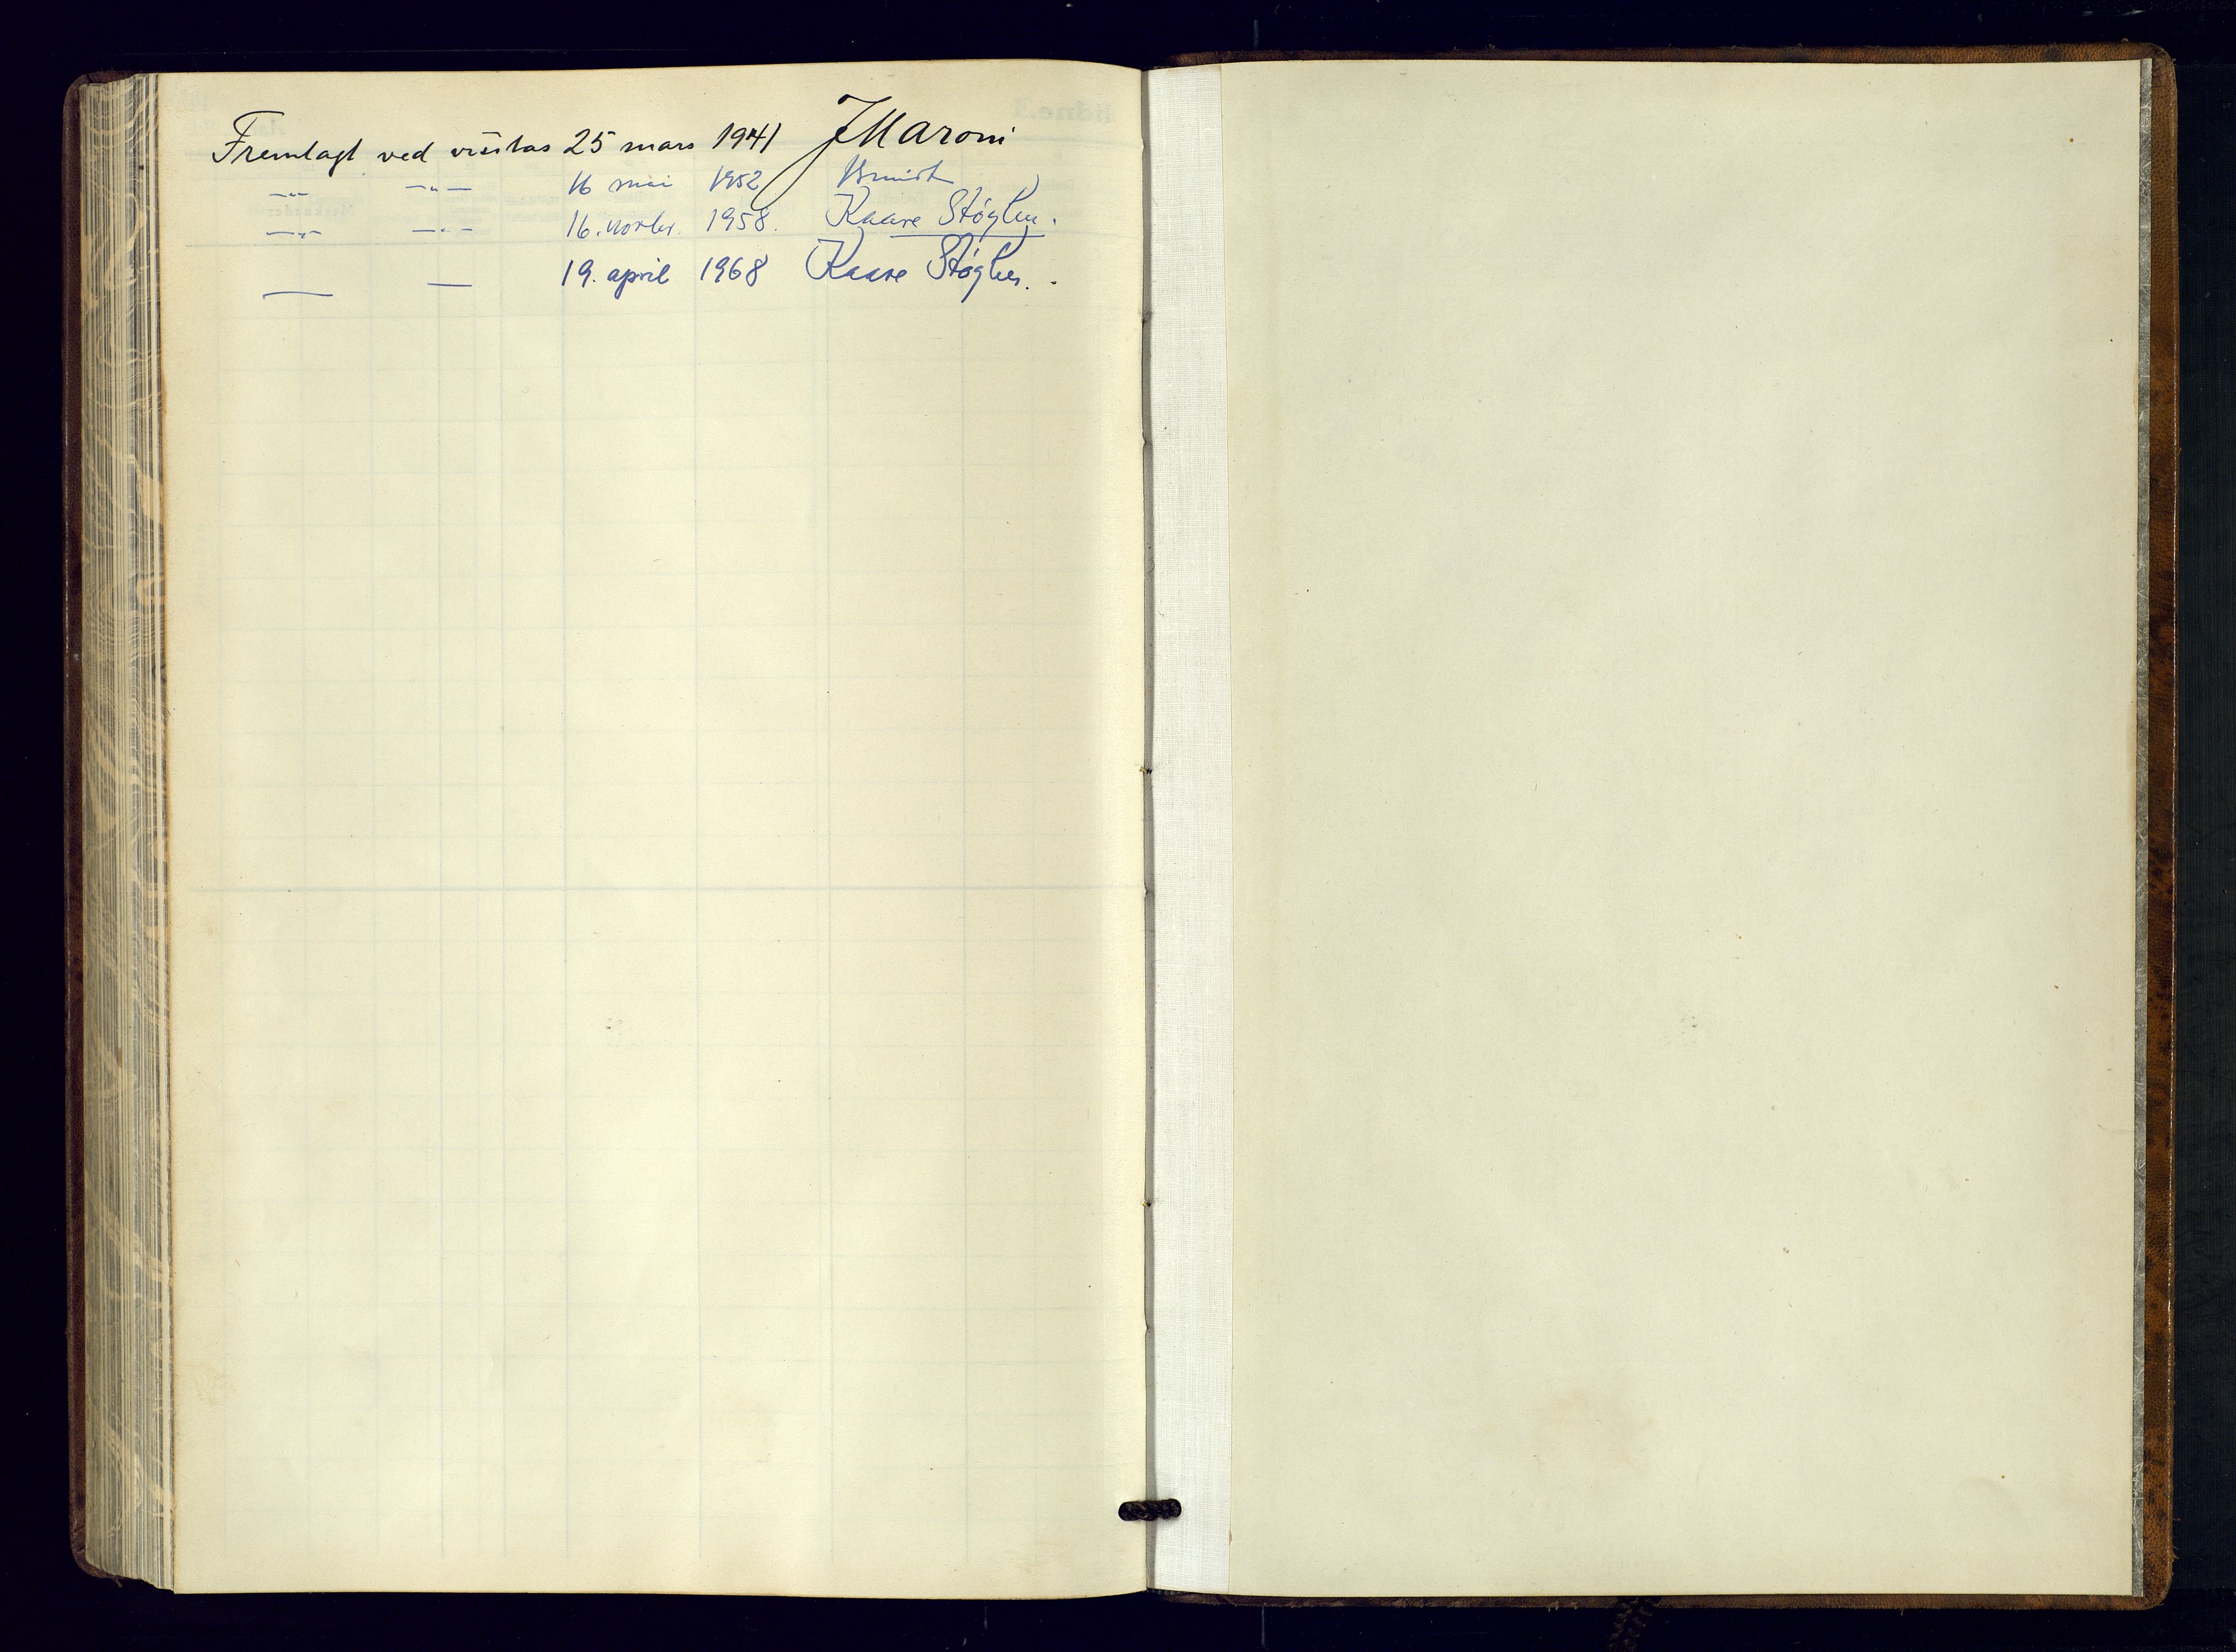 Fremlagt ved visitas 25 mars 1941 J Maroni
—"— —"— 16 mai 1952 HSmidt
—"— —"— 16. novbr. 1958. Kaare Støylen.
— — 19. april 1968 Kaare Støylen.